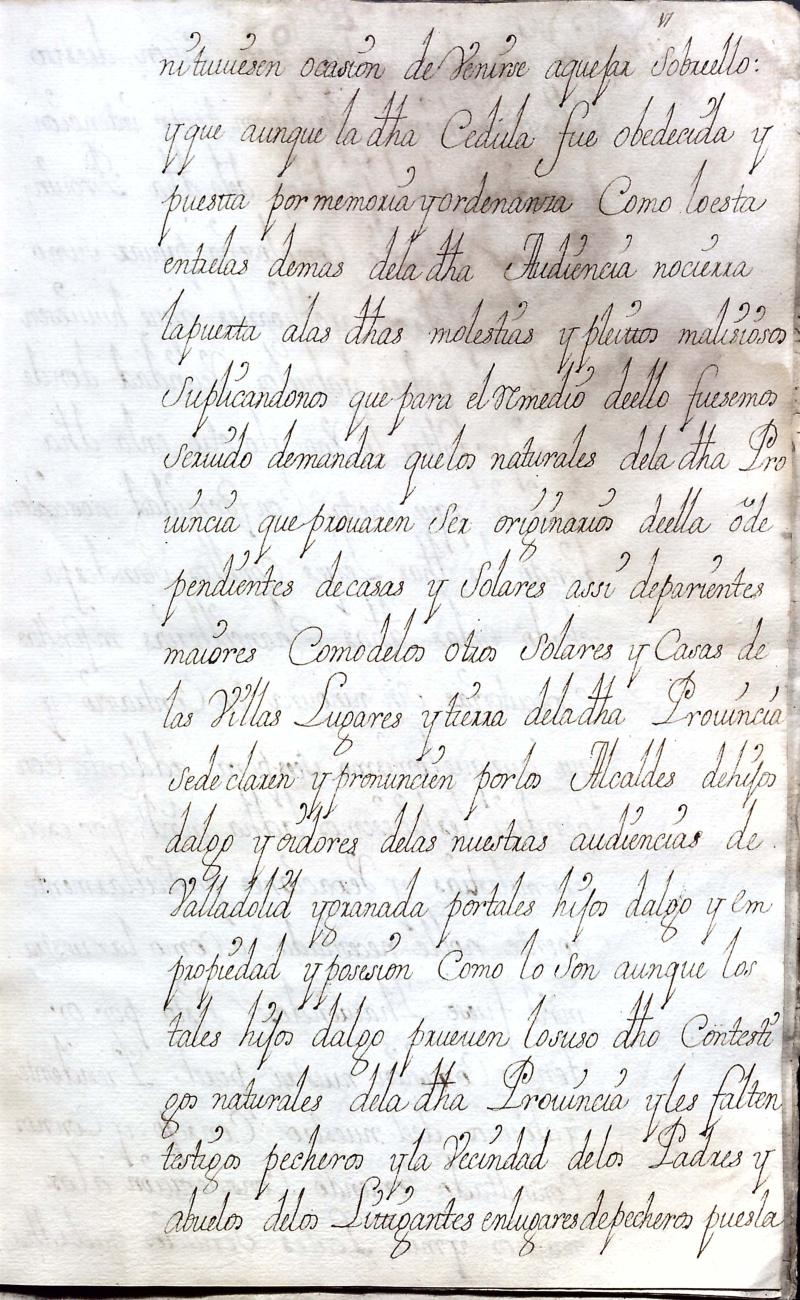 VI
ni tuuiesen ocasion de Venirse aquejar Sobreello:
y que aunque la dha Cedula fue obedecida y
puesta por memoria y ordenanza Como lo esta
entrelas demas dela dha Audiencia no cierra
la puerta alas dhas molestias y pleitos malisiosos
Suplicandonos que para el Remedio deello fuesemos
Seruido demandar quelos naturales dela dha Pro
uincia que prouaren Ser originarios deella o de
pendientes de casas y Solares assi de parientes
maiores Como delos otros Solares y Casas de
las Villas Lugares y tierra dela dha Prouincia
se declaren y pronuncien por los Alcaldes de hijos
dalgo y oidores delas nuestras audiencias de
Valladolid y granada por tales hijos dalgo y em
propiedad y posesion Como lo Son aunque los
tales hijos dalgo prueuen lo suso dho Con testi
gos naturales dela dha Prouincia y les falten
testigos pecheros y la Vecindad delos Padres y
abuelos delos Litigantes en lugares de pecheros pues la